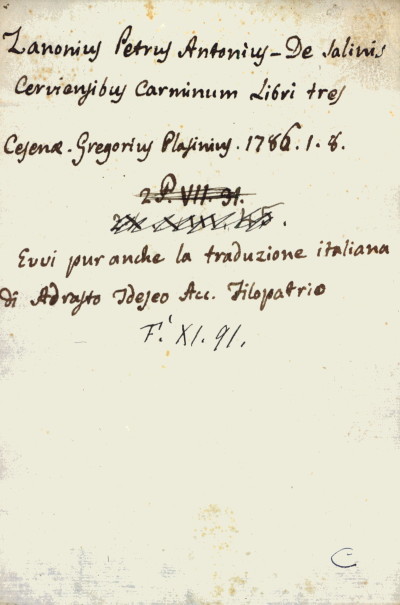 Zanonius Petrus Antonius - De Salinis
Cerviensibus Carminum Libri tres
Cesenæ. Gregorius Blasinius. 1786. 1. 8.
2P. VII. 31.
Evvi pur anche la traduzione italiana
di Adrasto Idejeo Acc. Filopatrio
F.' XI. 91.
C